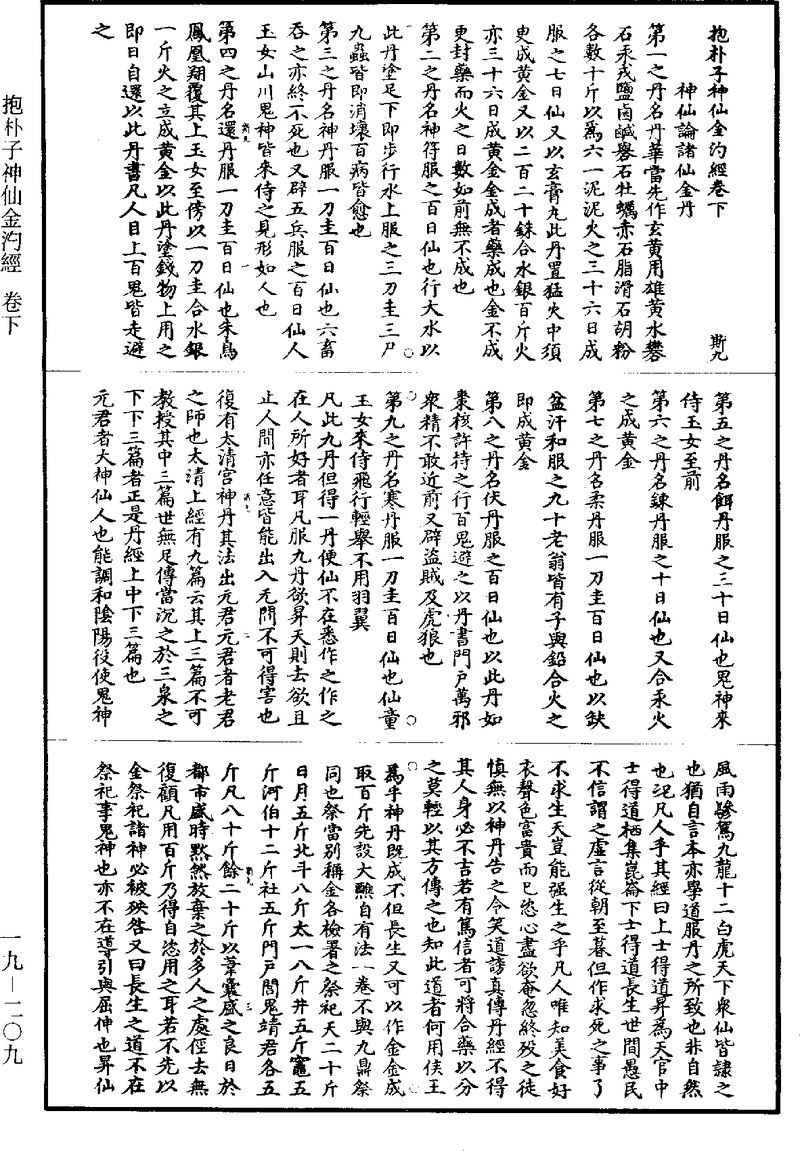 抱朴子神仙金汋經卷下　斯九
神仙論諸仙金丹
第一之丹名丹華當先作玄黃用雄黃水礬
石汞戎鹽鹵鹹礜石牡蠣赤石脂滑石胡粉
各數十斤以爲六一泥泥火之三十六日成
服之七日仙又以玄膏丸此丹置猛火中須
臾成黃金又以二百二十銖合水銀百斤火
亦三十六日成黃金金成者藥成也金不成
更封藥而火之日數如前無不成也
第二之丹名神符服之百日仙也行大水以
此丹塗足下即步行水上服之三刀圭三尸
九蟲皆即消壞百病皆愈也
第三之丹名神丹服一刀圭百日仙也六畜
吞之亦終不死也又辟五兵服之百日仙人
玉女山川鬼神皆來侍之見形如人也
第四之丹名還丹服一刀圭百日仙也朱鳥
鳳凰翔覆其上玉女至傍以一刀圭合水銀
一斤火之立成黃金以此丹塗錢物上用之
即日自還以此丹書凡人目上百鬼皆走避
之
第五之丹名餌丹服之三十日仙也鬼神來
侍玉女至前
第六之丹名鍊丹服之十日仙也又合汞火
之成黃金
第七之丹名柔丹服一刀圭百日仙也以缺
盆汗和服之九十老翁皆有子與鉛合火之
即成黃金
第八之丹名伏丹服之百日仙也以此丹如
棗核許持之行百鬼避之以丹書門戶萬邪
衆精不敢近前又辟盜賊及虎狼也
第九之丹名寒丹服一刀圭百日仙也仙童
玉女來侍飛行輕舉不用羽翼
凡此九丹但得一丹便仙不在悉作之作之
在人所好者耳凡服九丹欲昇天則去欲且
止人間亦任意皆能出入无間不可得害也
復有太清宮神丹其法出元君元君者老君
之師也太清上經有九篇云其上三篇不可
教授其中三篇世無足傳當沉之於三泉之
下下三篇者正是丹經上中下三篇也
元君者大神仙人也能調和陰陽役使鬼神
風雨驂駕九龍十二白虎天下衆仙皆隸之
也猶自言本亦學道服丹之所致也非自然
也況凡人乎其經曰上士得道昇爲天官中
士得道栖集崑崙下士得道長生世間愚民
不信謂之虛言從朝至暮但作求死之事了
不求生天豈能强生之乎凡人唯知美食好
衣聲色富貴而已恣心盡欲奄忽終歿之徒
慎無以神丹告之令笑道謗真傳丹經不得
其人身必不吉若有篤信者可將合藥以分
之莫輕以其方傳之也知此道者何用侯王
爲乎神丹既成不但長生又可以作金金成
取百斤先設大醮自有法一卷不與九鼎祭
同也祭當別稱金各檢署之祭祀天二十斤
日月五斤北斗八斤太一八斤井五斤竈五
斤河伯十二斤社五斤門戶閭鬼靖君各五
斤凡八十斤餘二十斤以葦囊盛之良日於
都市盛時黙然放棄之於多人之處徑去無
復顧凡用百斤乃得自恣用之耳若不先以
金祭祀諸神必被殃咎又曰長生之道不在
祭祀事鬼神也亦不在導引與屈伸也昇仙
抱朴子神仙金汋經　卷下
一九－二〇九